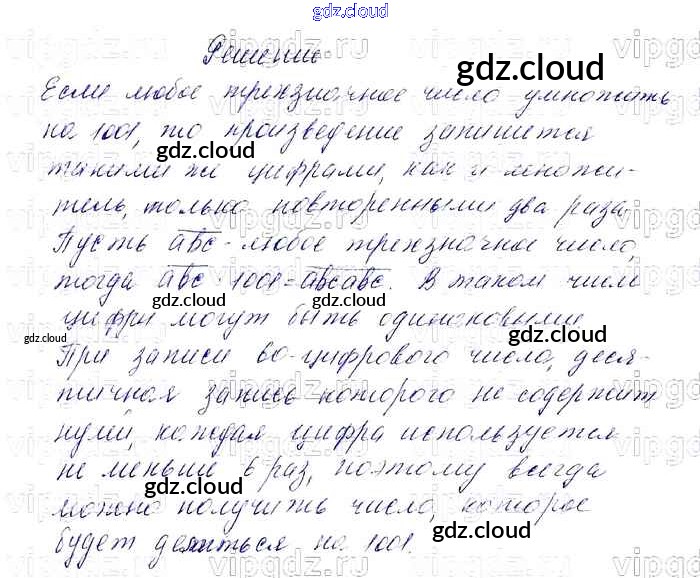 gdz.cloud
Решение
Если любое трехзначное число умножить
на 1001, то произведение запишется
такими же цифрами, как и множи-
тель, только повторенными два раза.
Пусть abc - любое трехзначное число,
тогда abc · 1001 = abcabc. В таком числе
цифры могут быть одинаковыми.
При записи 60-цифрового числа, деся-
тичная запись которого не содержит
нулей, каждая цифра используется
не меньше 6 раз, поэтому всегда
можно получить число, которое
будет делиться на 1001.
gdz.cloud
gdz.cloud
gdz.cloud
gdz.cloud
gdz.cloud
gdz.cloud
gdz.cloud
gdz.cloud
gdz.cloud
gdz.cloud